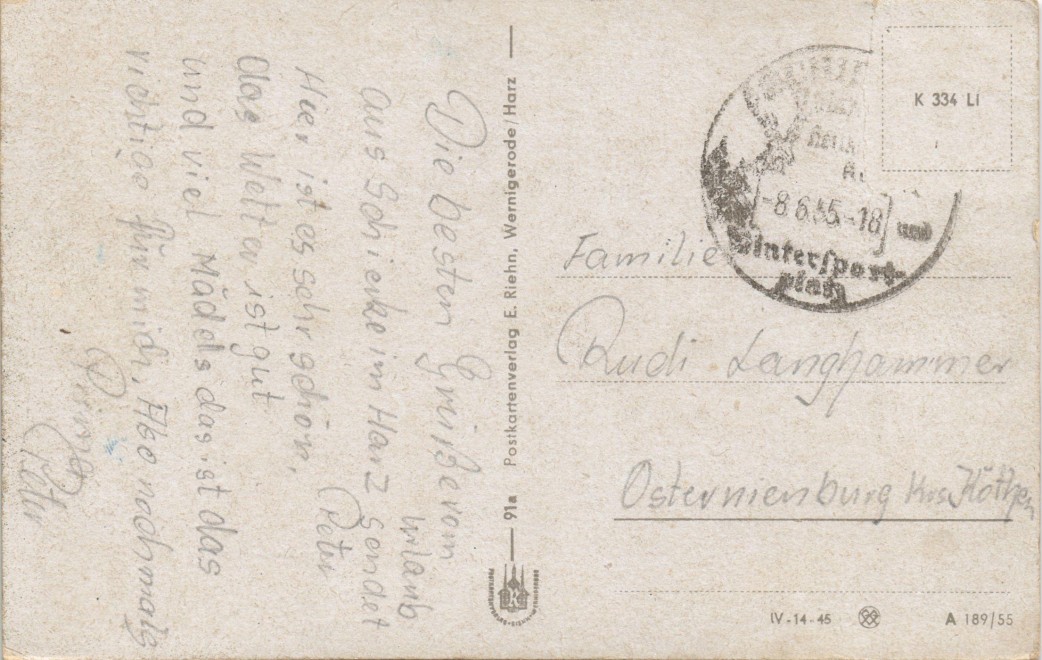 Die besten Grüße vom
Urlaub
aus Schierke im Harz sendet
Peter
Hier ist es sehr schön.
das Wetter ist gut
und viel Mädels das ist das
richtige für mich. Also nochmals
Peter
91a Postkartenverlag E. Riehn, Wernigerode/Harz
K 334 LI
-8.6.55.-18
und
Wintersport-
platz
Familie
Rudi Langhammer
Osternienburg Krs. Köthen
IV-14-45
A 189/55